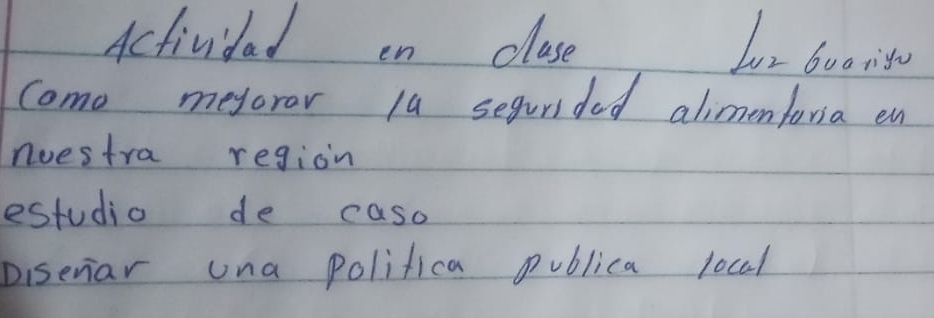 Actividad en clase Luz
Como mejorar la seguridad alimentaria en
nuestra región
estudio de caso
Diseñar una politica publica local